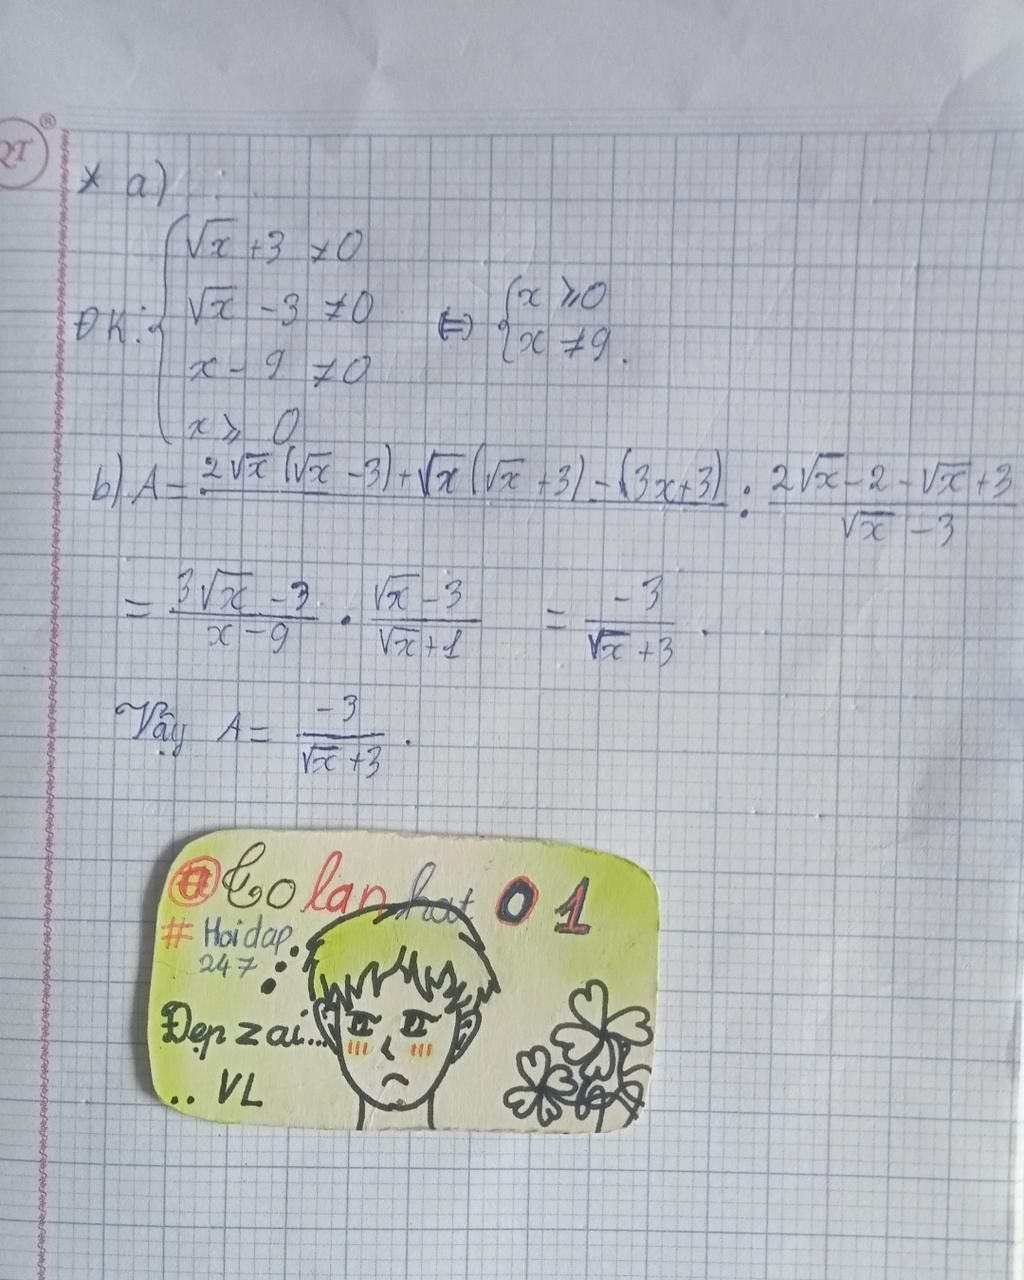 * a)
ĐK: { √x + 3 ≠ 0
√x - 3 ≠ 0
x - 9 ≠ 0
x ≥ 0
⇔ { x ≥ 0
x ≠ 9.
b) A = 2√x (√x - 3) + √x (√x + 3) - (3x + 3) / : 2√x - 2 - √x + 3 / √x - 3
= 3√x - 3 / x - 9 . √x - 3 / √x + 1 = -3 / √x + 3 .
Vậy A = -3 / √x + 3 .
@Colanhat01
# Hoidap
247
Đẹp zai...
.. VL